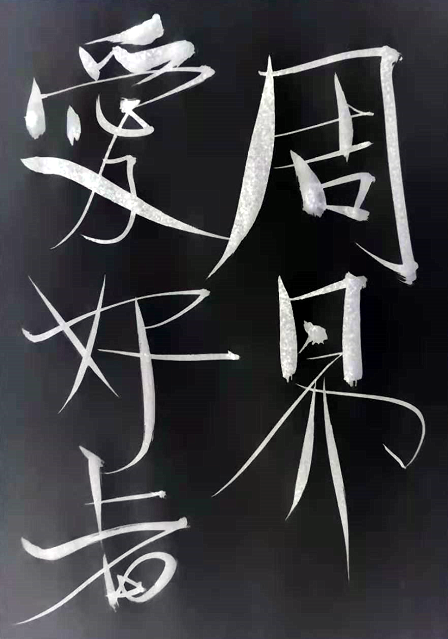 周易
愛好者